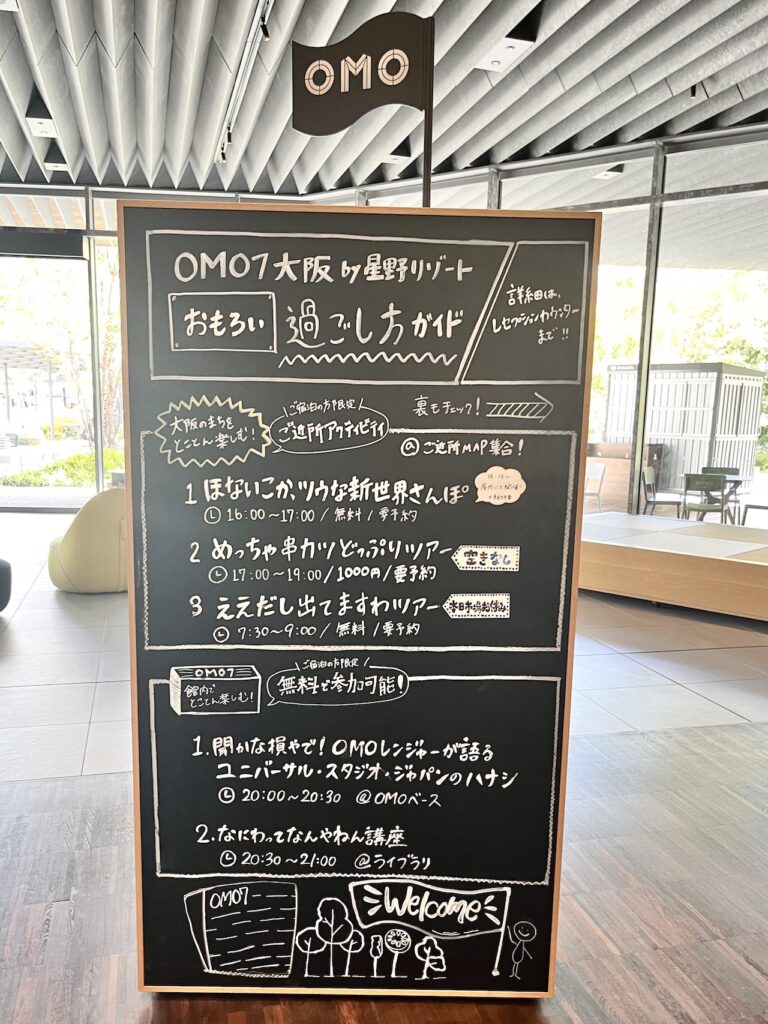 OMO
OMO7大阪 by 星野リゾート
おもろい 過ごし方ガイド
詳細は、
レセプションカウンター
まで!!
大阪のまちを
とことん楽しむ!
ご宿泊の方限定
ご近所アクティビティ
裏もチェック!
@ご近所MAP集合!
1 ほないこか、ツウな新世界さんぽ
16:00~17:00/無料/要予約
2 めっちゃ串カツどっぷりツアー
空きなし
17:00~19:00/1000円/要予約
3 ええだし出てますわツアー
本日市場お休み
7:30~9:00/無料/要予約
OMO7
館内で
とことん楽しむ!
ご宿泊の方限定
無料で参加可能!
1.聞かな損やで!OMOレンジャーが語る
ユニバーサル・スタジオ・ジャパンのハナシ
20:00~20:30 @OMOベース
2.なにわってなんやねん講座
20:30~21:00 @ライブラリ
OMO7
Welcome